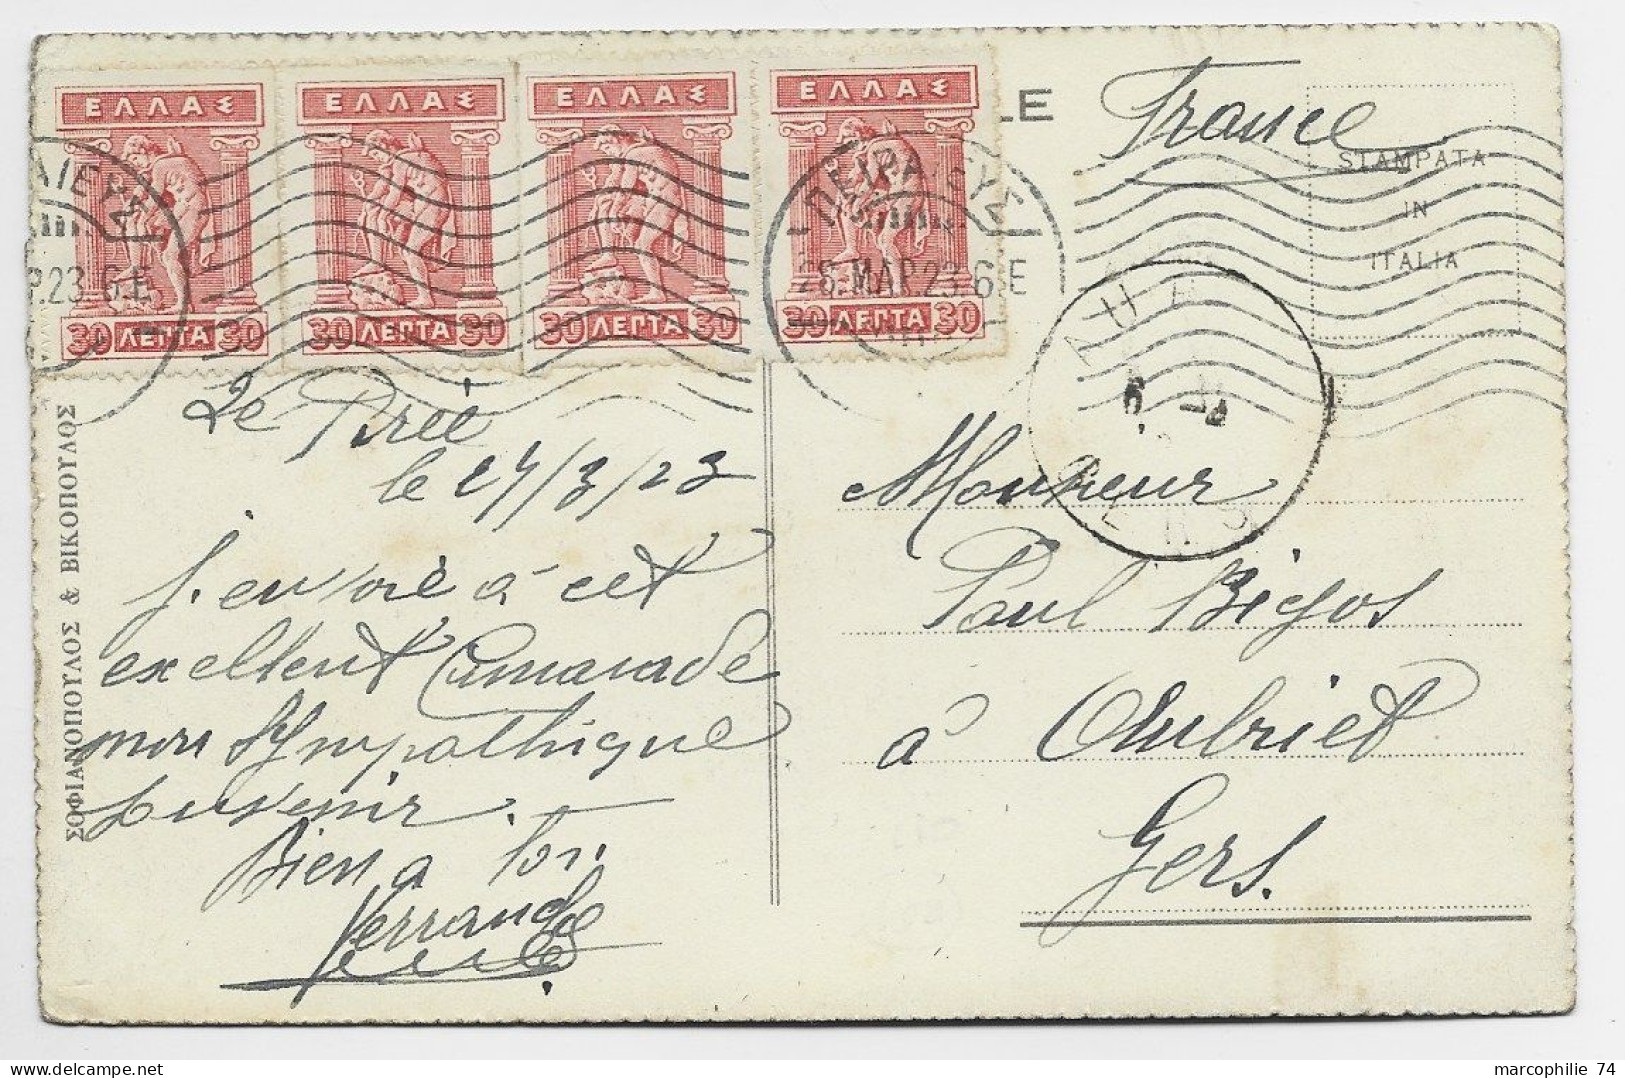 ΕΛΛΑΣ ΕΛΛΑΣ ΕΛΛΑΣ ΕΛΛΑΣ
30 ΛΕΠΤΑ 30 30 ΛΕΠΤΑ 30 30 ΛΕΠΤΑ 30 30 ΛΕΠΤΑ 30
ΑΙΕΥΣ
Ρ.23.6.Ε
ΠΕΙΡΑΙΕΥΣ
28.ΜΑΡ.23.6.Ε
LE
France
STAMPATA
IN
ITALIA
Le Pirée
le 27/3/23
j. envoie à cet
exellent Camarade
mon sympathique
souvenir.
Bien a toi
ΣΟΦΙΑΝΟΠΟΥΛΟΣ & ΒΙΚΟΠΟΥΛΟΣ
AU
6 -4
GERS
Monsieur
Paul
à
Gers.
marcophilie 74